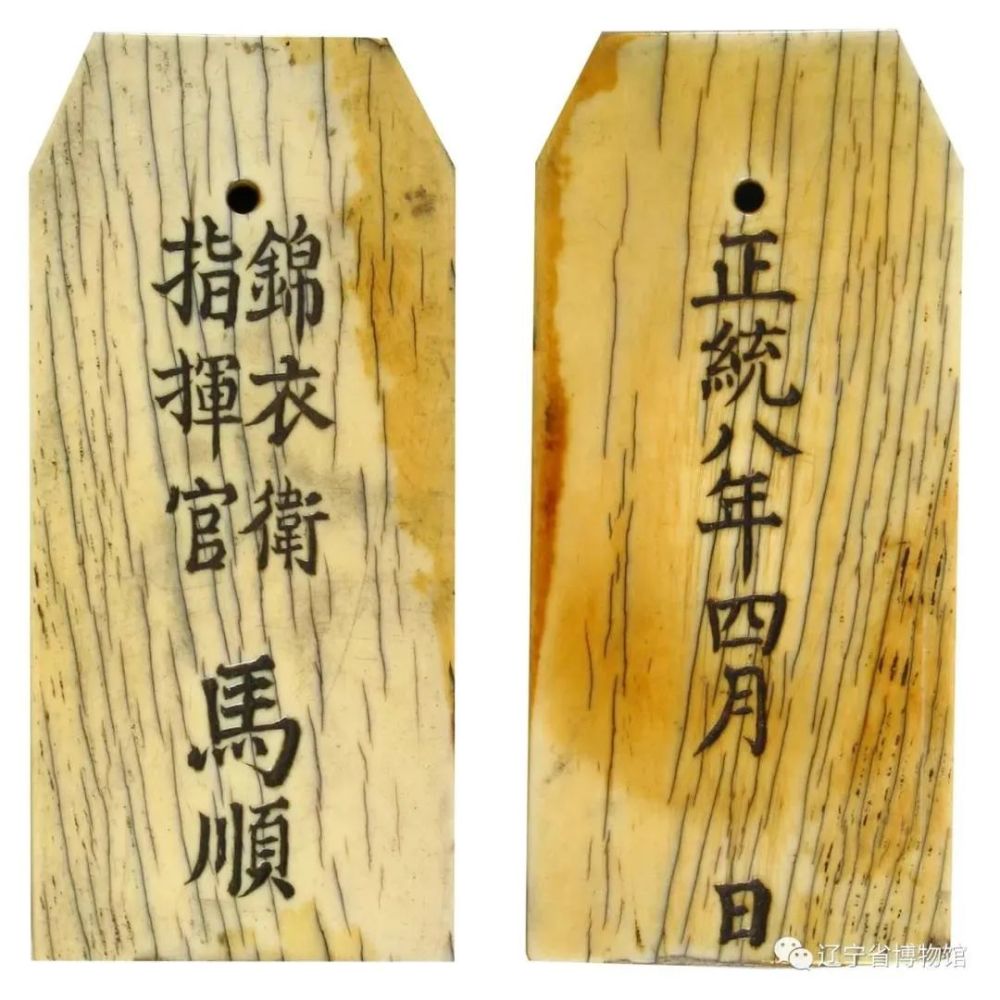 錦衣衛
指揮官
馬順
正統八年四月 日
辽宁省博物馆